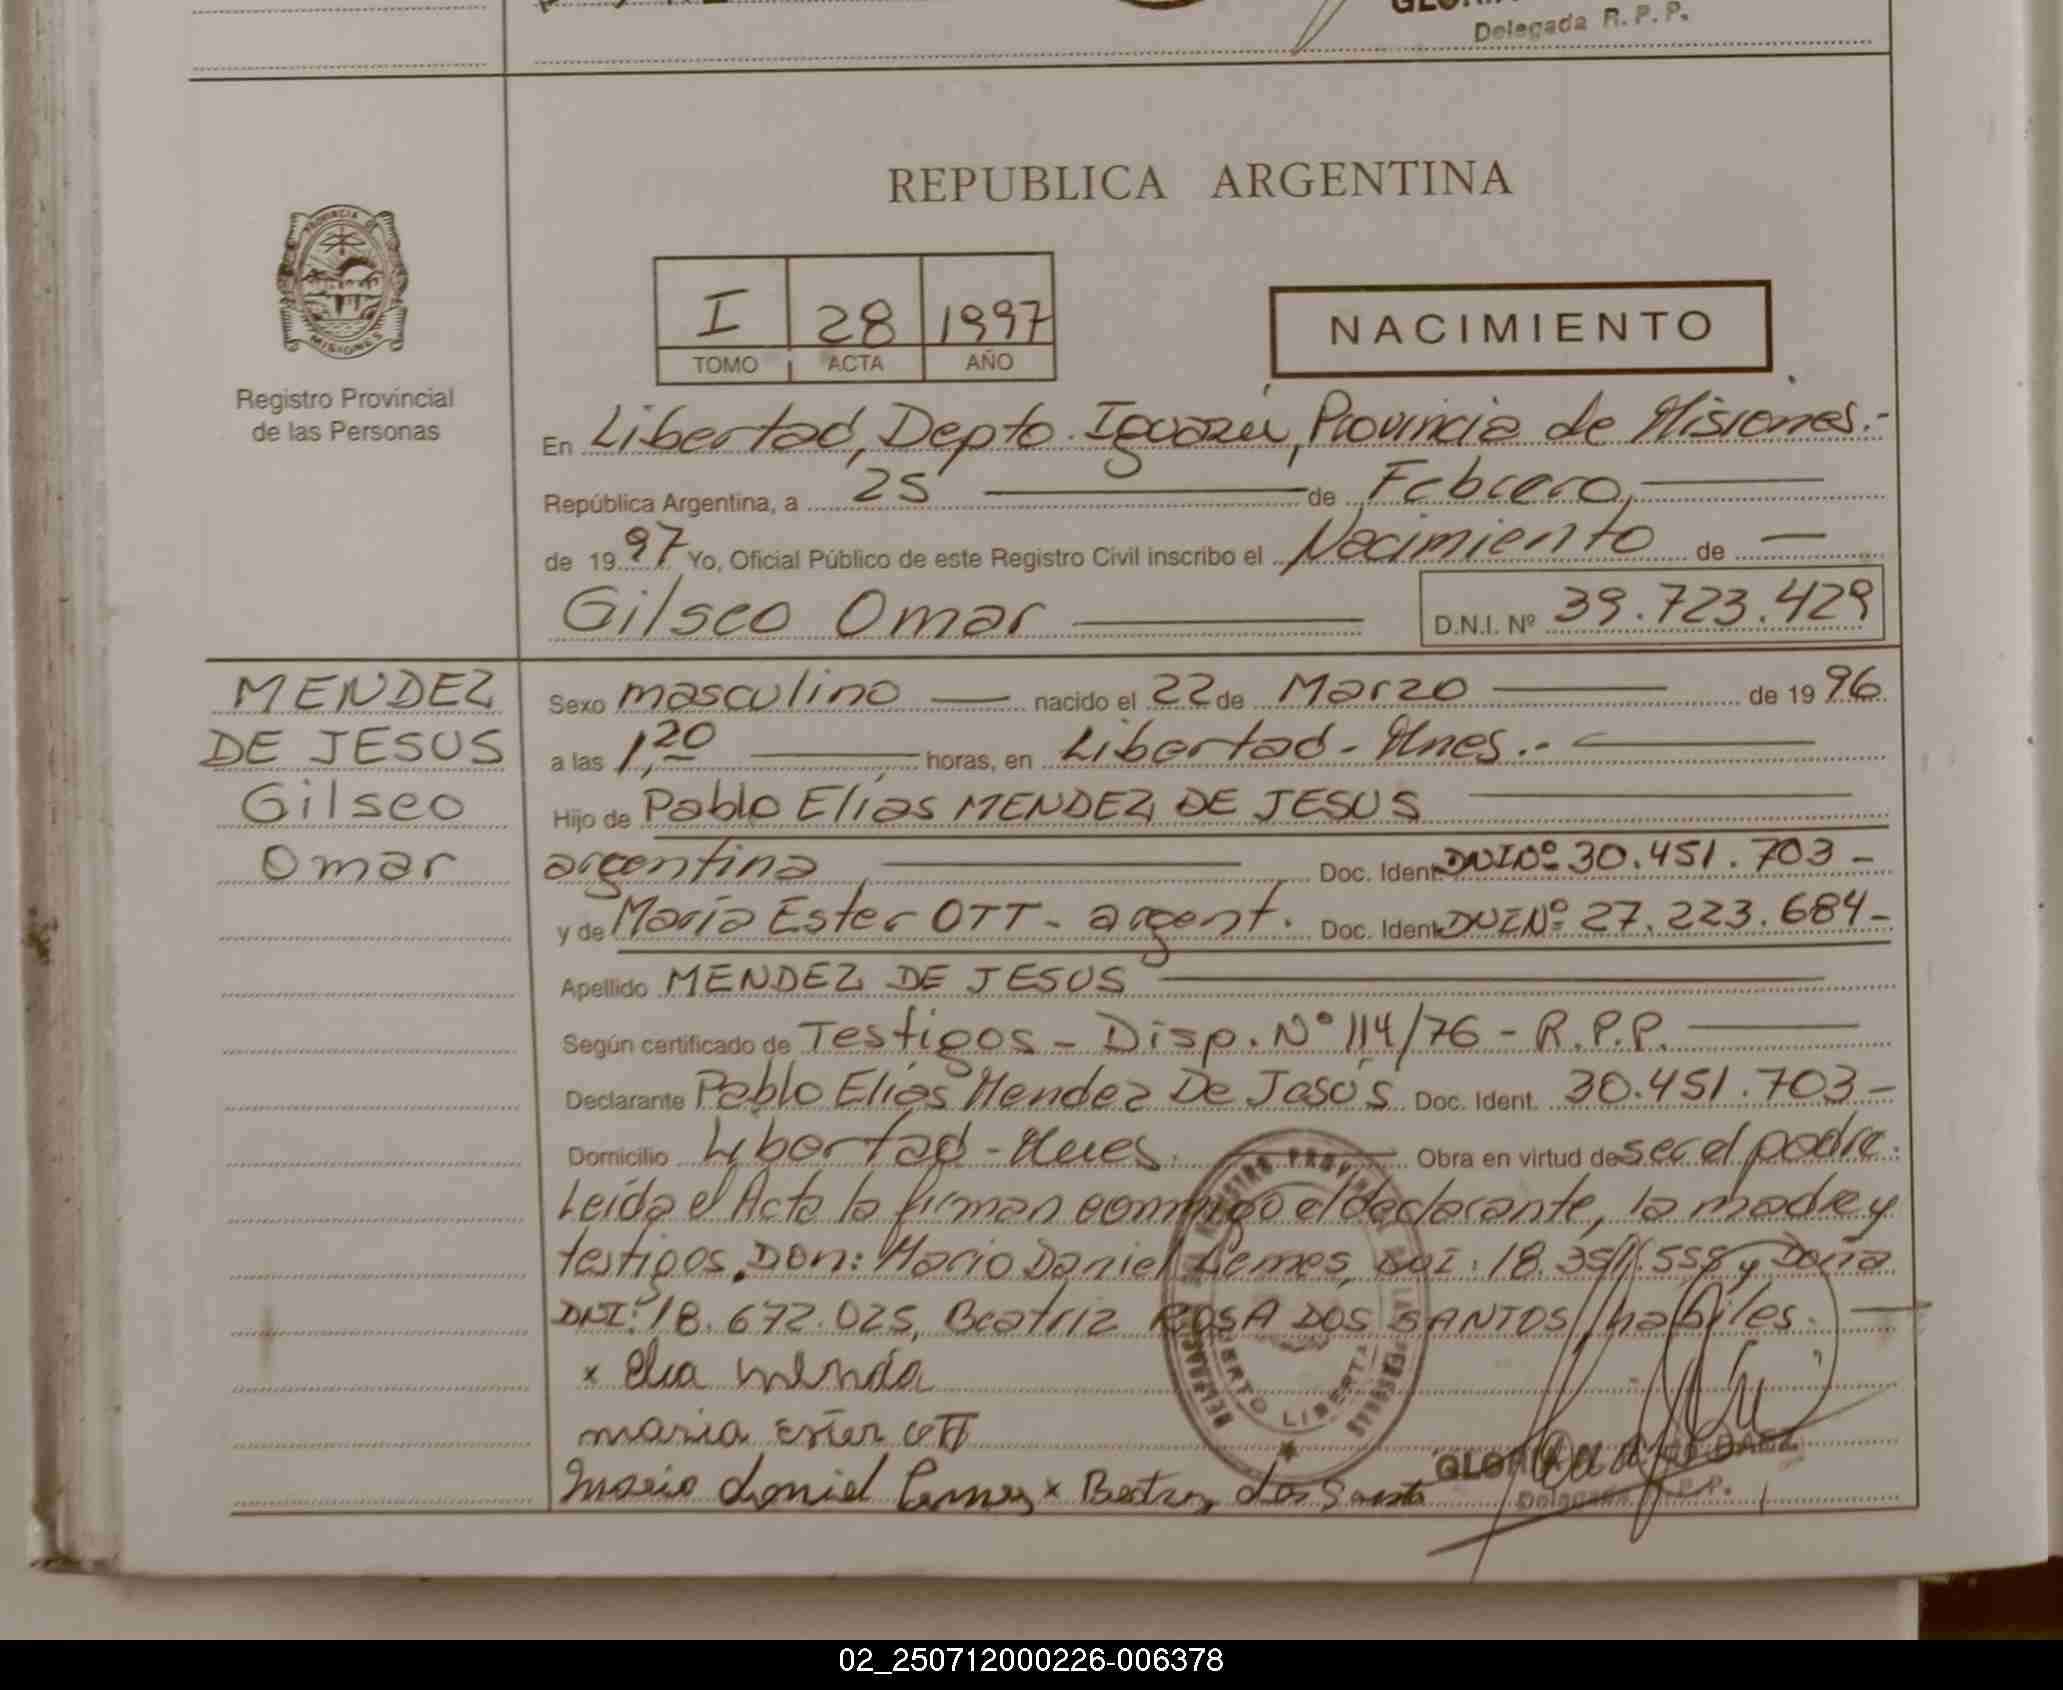 Delegada R.P.P.
REPUBLICA ARGENTINA
PROVINCIA DE
MISIONES
Registro Provincial
de las Personas
I 28 1997
TOMO ACTA AÑO
NACIMIENTO
En Libertad, Depto. Iguazú, Provincia de Misiones.-
República Argentina, a 25 de Febrero,
de 1997 Yo, Oficial Público de este Registro Civil inscribo el Nacimiento de —
Gilseo Omar
D.N.I. Nº 39.723.429
MENDEZ
DE JESUS
Gilseo
Omar
Sexo masculino — nacido el 22 de Marzo de 1996
a las 1,20 horas, en Libertad - Mnes.-
Hijo de Pablo Elías MENDEZ DE JESUS
argentina Doc. Ident. DNI Nº 30.451.703 -
y de María Ester OTT - argent. Doc. Ident. DNI Nº 27.223.684 -
Apellido MENDEZ DE JESUS
Según certificado de Testigos - Disp. Nº 114/76 - R.P.P.
Declarante Pablo Elías Mendez De Jesús Doc. Ident. 30.451.703 -
Domicilio Libertad - Mnes. Obra en virtud de ser el padre.
Leída el Acta la firman conmigo el declarante, la madre y
testigos. Don: Mario Daniel Lemes, DNI: y Doña
DNI: 18.672.025, Beatriz ROSA DOS SANTOS // habiles.
x
maria ester ott
mario daniel Lemes x Beatriz dos Santo
GLORIA BAEZ
Delegada R.P.P.
02_250712000226-006378